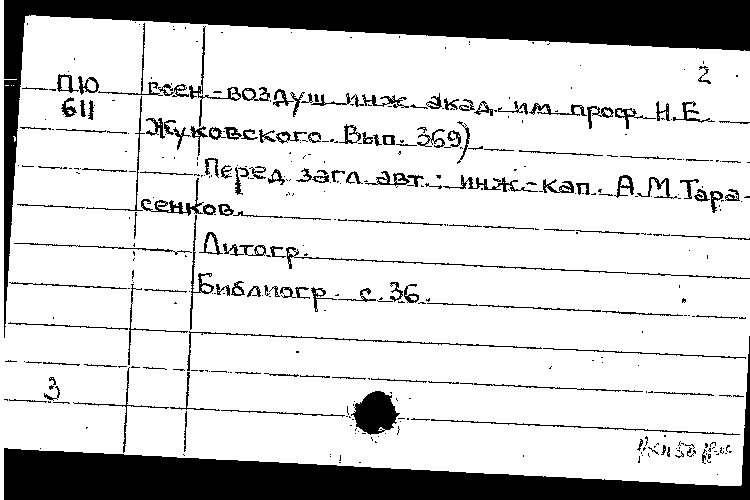 2
ПЮ воен.-воздуш. инж. акад. им. проф. Н.Е.
611 Жуковского. Вып. 369)
Перед загл. авт.: инж.-кап. А.М. Тара-
сенков.
Литогр.
Библиогр. с. 36.
3